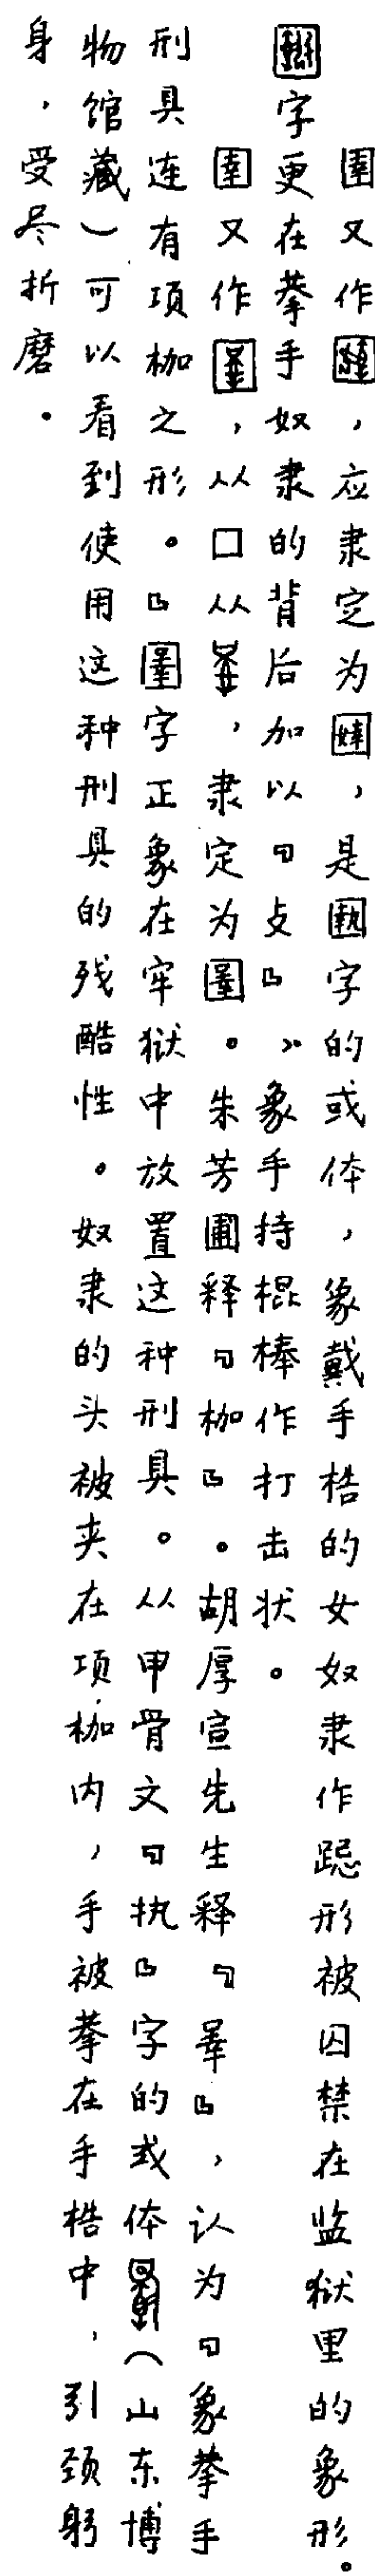 圉又作，应隶定为，是字的或体，象戴手梏的女奴隶作跽形被囚禁在监狱里的象形。
字更在拲手奴隶的背后加以『攴』，象手持棍棒作打击状。
圉又作，从囗从，隶定为。朱芳圃释『枷』。胡厚宣先生释『』，认为『象拲手
刑具连有项枷之形。』字正象在牢狱中放置这种刑具。从甲骨文『执』字的或体（山东博
物馆藏）可以看到使用这种刑具的残酷性。奴隶的头被夹在项枷内，手被拲在手梏中，引颈躬
身，受尽折磨。